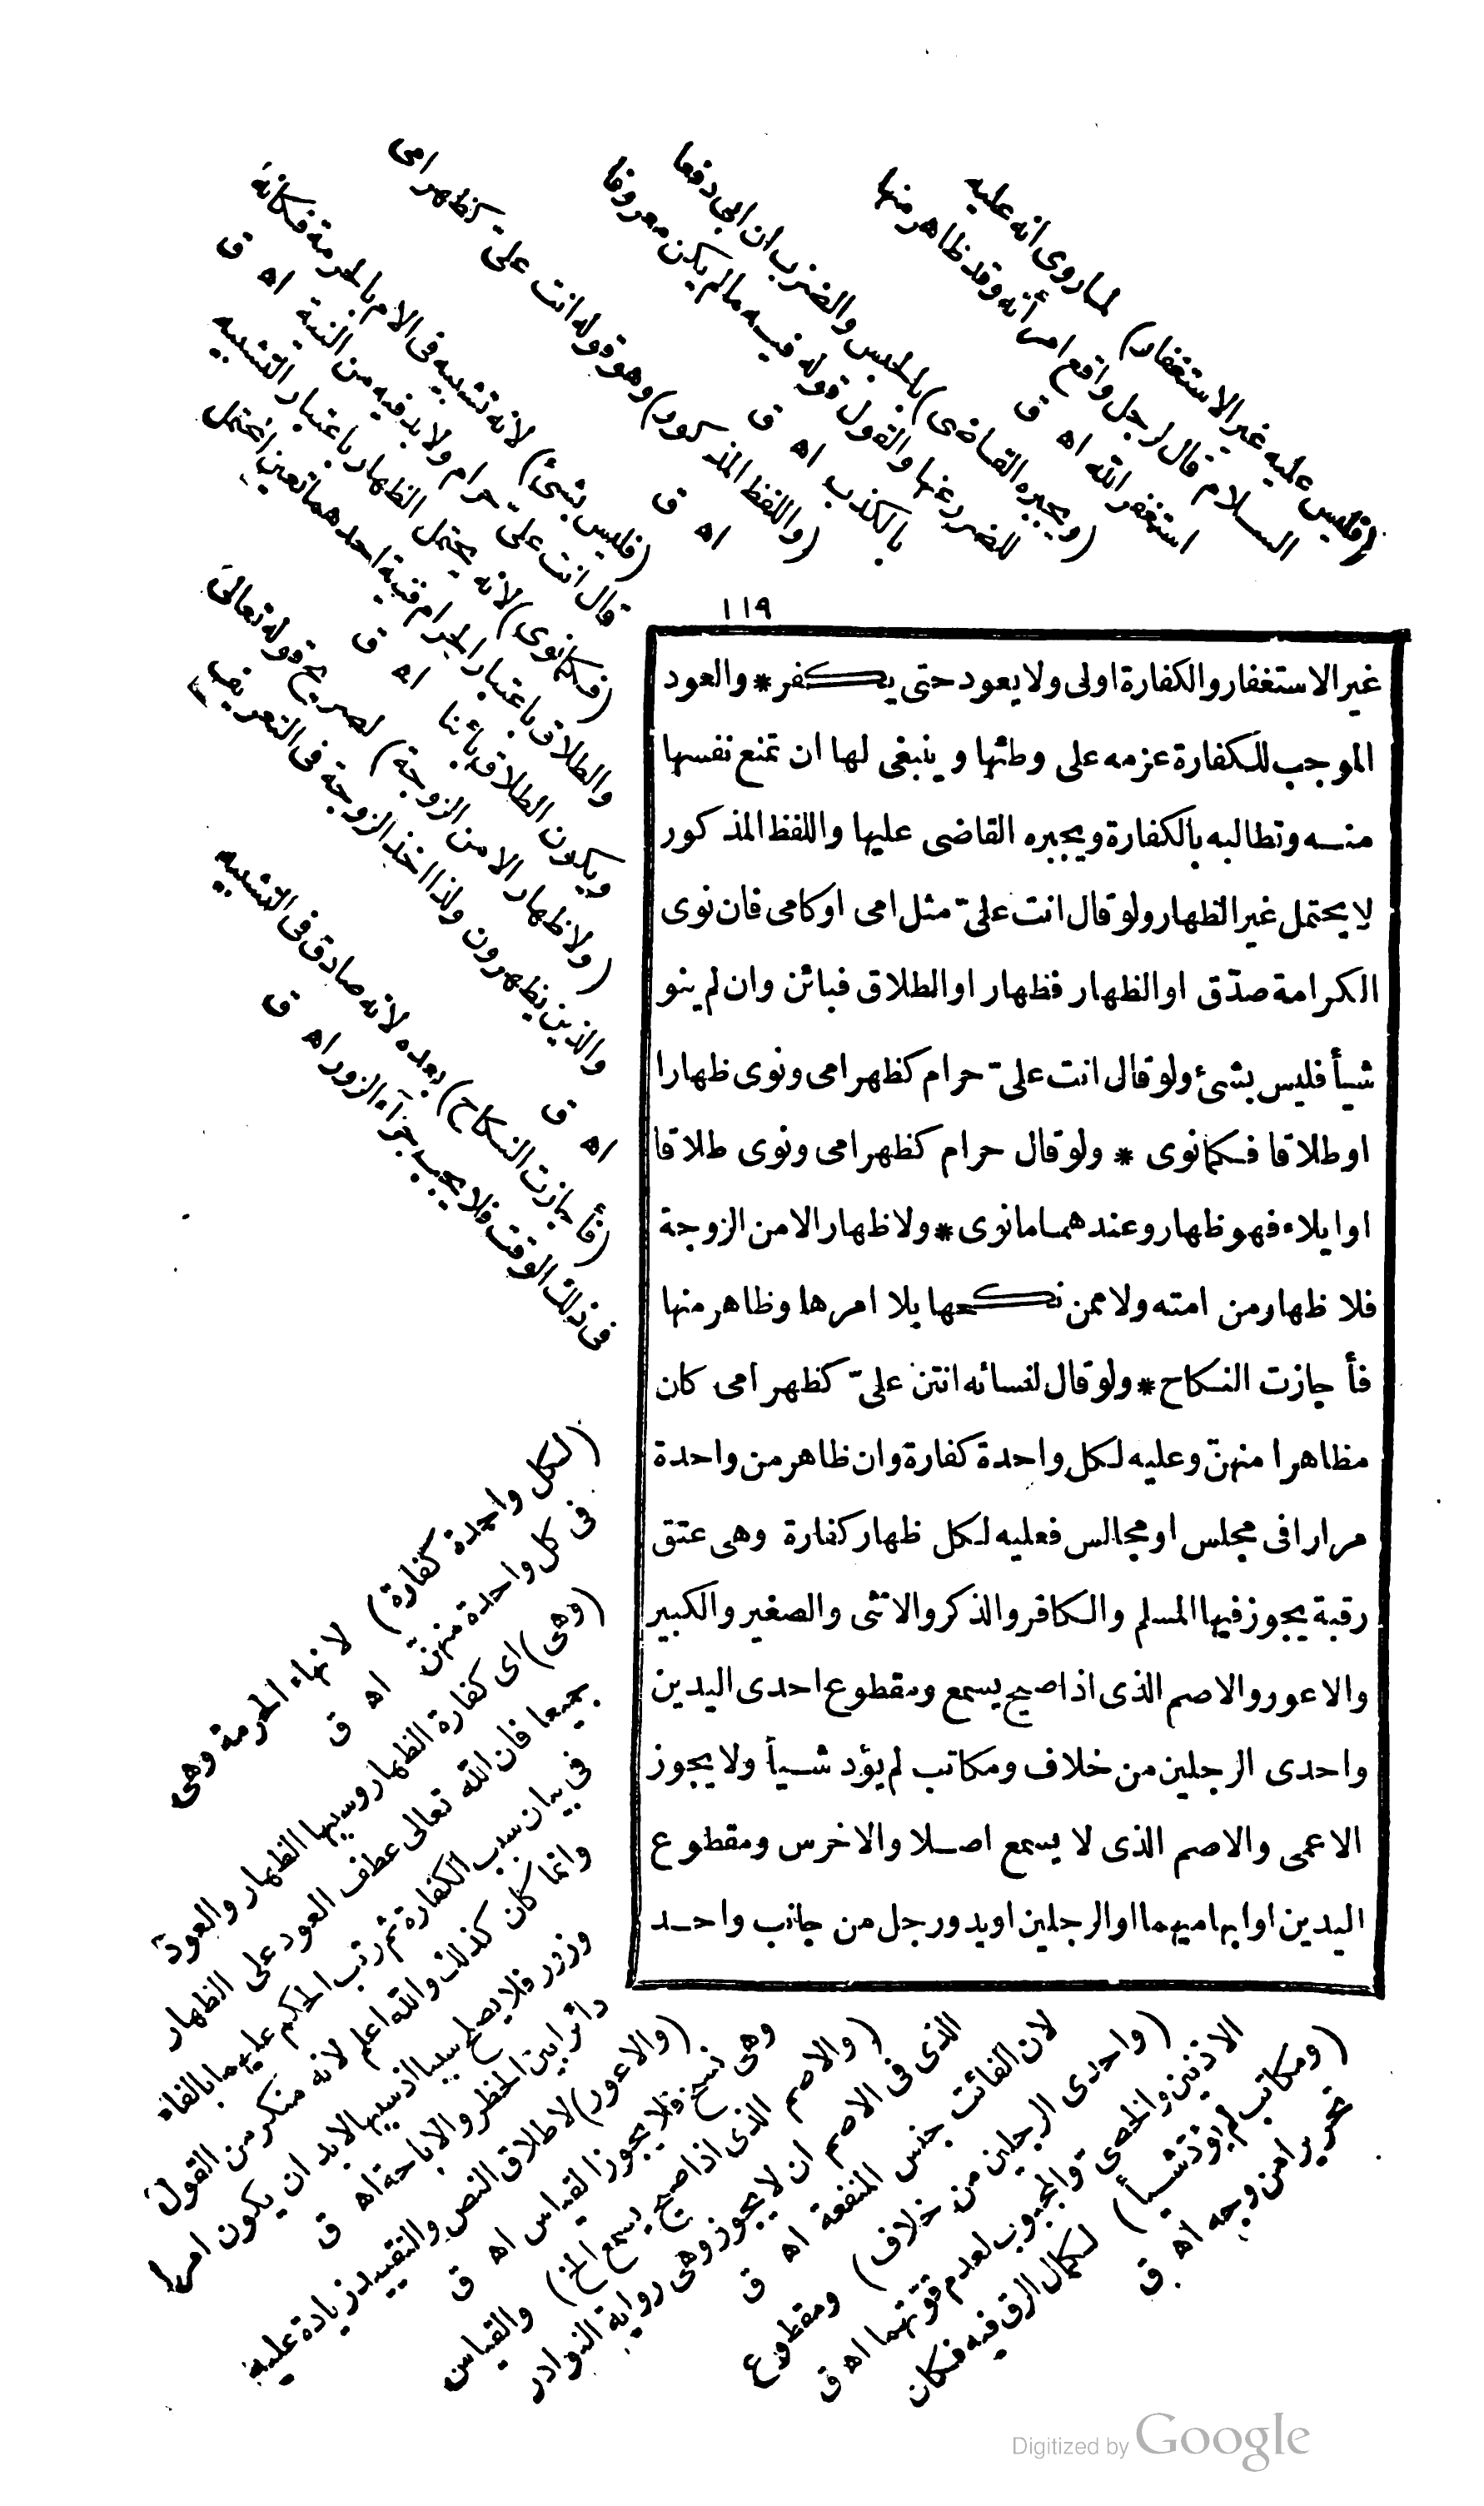 (فليس عليه غير الاستغفار) لما روى انه عليه
السلام قال لرجل واقع امرأته وقد ظاهر منها
استغفر الله اه ق
(ويجبره القاضى) بالحبس والضرب ان ابى دفعا
للضرر عنها والقول قوله فيه ما لم يكن معروفا
بالكذب اه ق
(واللفظ المذكور) وهو قوله انت علىّ كظهر امى
اه ق
(فليس بشئ) لانه تشبيه فى الامر بالحرمة فكانه
قال انت علىّ حرام ولا بد فيه من النية اه ق
(فكما نوى) لانه يحتمل الظهار باعتبار التشبيه
والطلاق باعتبار الحرام فنية احدهما تعين المحتمل
ويكون الطلاق بائنا اه ق
(ولا ظهار الا من الزوجة) لصريح قوله تعالى
والذين يظهرون
اه ق
(فأجازت النكاح) بعده لانه صادق فى التشبيه
فى ذلك الوقت فلا يجب جزاء الزور اه ق
١١٩
غير الاستغفار والكفارة اولى ولا يعود حتى يكفر * والعود
الموجب للكفارة عزمه على وطئها وينبغى لها ان تمنع نفسها
منه وتطالبه بالكفارة ويجبره القاضى عليها واللفظ المذكور
لا يحتمل غير الظهار ولو قال انت علىّ مثل امى او كامى فان نوى
الكرامة صدّق او الظهار فظهار او الطلاق فبائن وان لم ينو
شيأ فليس بشئ ولو قال انت علىّ حرام كظهر امى ونوى ظهارا
او طلاقا فكما نوى * ولو قال حرام كظهر امى ونوى طلاقا
او ايلاء فهو ظهار وعندهما ما نوى * ولا ظهار الا من الزوجة
فلا ظهار من امته ولا ممن نكحها بلا امرها وظاهر منها
فأجازت النكاح * ولو قال لنسائه انتن علىّ كظهر امى كان
مظاهرا منهنّ وعليه لكل واحدة كفارة وان ظاهر من واحدة
مرارا فى مجلس او مجالس فعليه لكل ظهار كفارة وهى عتق
رقبة يجوز فيها المسلم والكافر والذكر والانثى والصغير والكبير
والاعور والاصم الذى اذا صيح يسمع ومقطوع احدى اليدين
واحدى الرجلين من خلاف ومكاتب لم يؤد شيأ ولا يجوز
الاعمى والاصم الذى لا يسمع اصلا والاخرس ومقطوع
اليدين او ابهاميهما او الرجلين او يد ورجل من جانب واحد
(لكل واحدة كفارة) لانهاء الحرمة وهى
فى كل واحدة منهنّ اه ق
(وهى) اى كفارة الظهار وسببها الظهار والعود
جميعا فان الله تعالى عطف العود على الظهار
فى بيان سبب الكفارة ثم رتب الحكم عليهما بالفاء
وانما كان كذلك والله اعلم لانه منكر من القول
وزور فلا يصلح سببا اذ سببها لا بد ان يكون امرا
دائرا بين الحظر والاباحة اه ق
(والاعور) لاطلاق النص والتقييد زيادة عليه
وهى نسخ فلا يجوز القياس اه ق
(والاصم الذى اذا صيح يسمع الخ) والقياس
الذى فى الاصم ان لا يجوز وهى رواية النوادر
لان الفائت جنس المنفعة اه ق
(واحدى الرجلين من خلاف) ومقطوع
الاذنين والخصى والمجبوب لعدم فوتهما اه ق
(ومكاتب لم يؤد شيأ) لكمال الرق فيه فكان
تحريرا من وجه اه ق
Digitized by Google